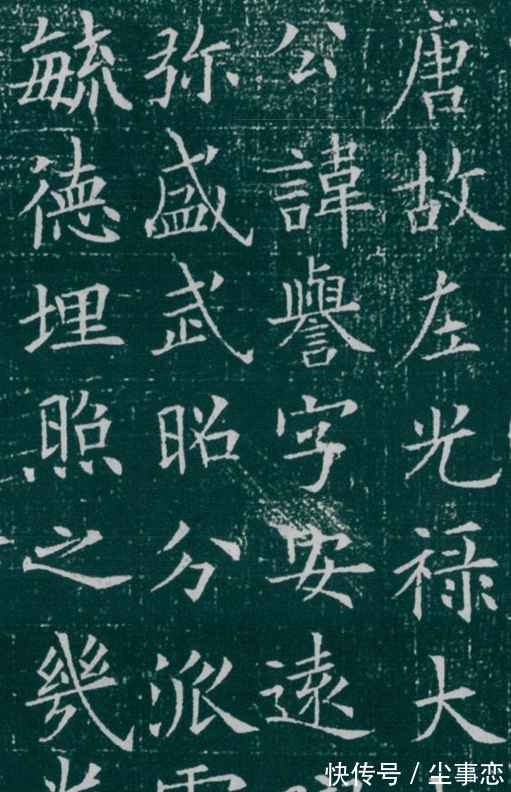 唐故左光禄大
公諱譽字安遠
弥盛武昭分派
毓德埋照之幾
快传号 / 尘事恋